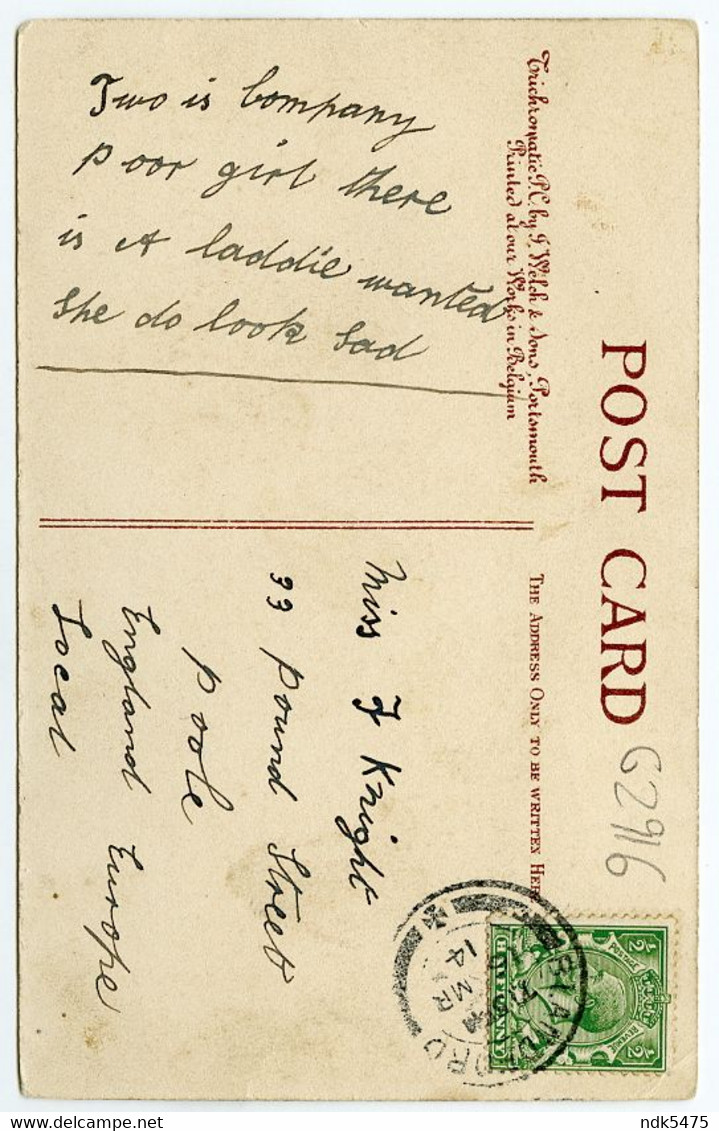 POST CARD
Trichromatic P.C. by J. Welch & Sons, Portsmouth
Printed at our Works in Belgium
THE ADDRESS ONLY TO BE WRITTEN HERE
Two is Company
poor girl there
is A laddie wanted
She do look Sad
Miss F Knight
33 Pound Street
Poole
England Europe
Local
G2916
POSTAGE
REVENUE
1/2 1/2
BLANDFORD
MR
14
delcampe.net
ndk5475